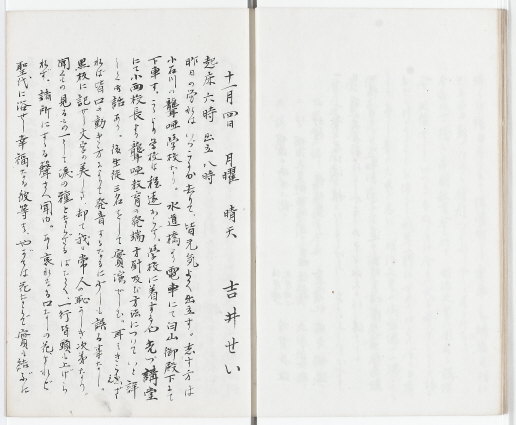 十一月四日　月曜　晴天　吉井せい
起床六時　出立八時
昨日の労れはいづこにか去りて、皆元気よく出立す。志す方は
小石川の聾唖学校なり。水道橋より電車にて白山御殿下にて
下車す。こゝより学校は程遠からず。学校に着するや先づ講堂
にて小西校長より聾唖教育の発端方針及び方法についていと詳
しき御話あり。後生徒三名をして実演せしむ。耳にきこえず
れば皆口の動き方によりて発音するなるに少しも誤る事なし。
黒板に記せし文字の美しき、却て我々常人の恥かしき次第なり。
聞くもの見るもの一として涙の種となさゞるはなく、一行皆頭を上げ
れず。諸所にすゝる声さへ聞ゆ。あゝ哀れなる口なしの花よ、されど
聖代に浴せし幸福なる彼等よ、やがては花に実を結ぶに